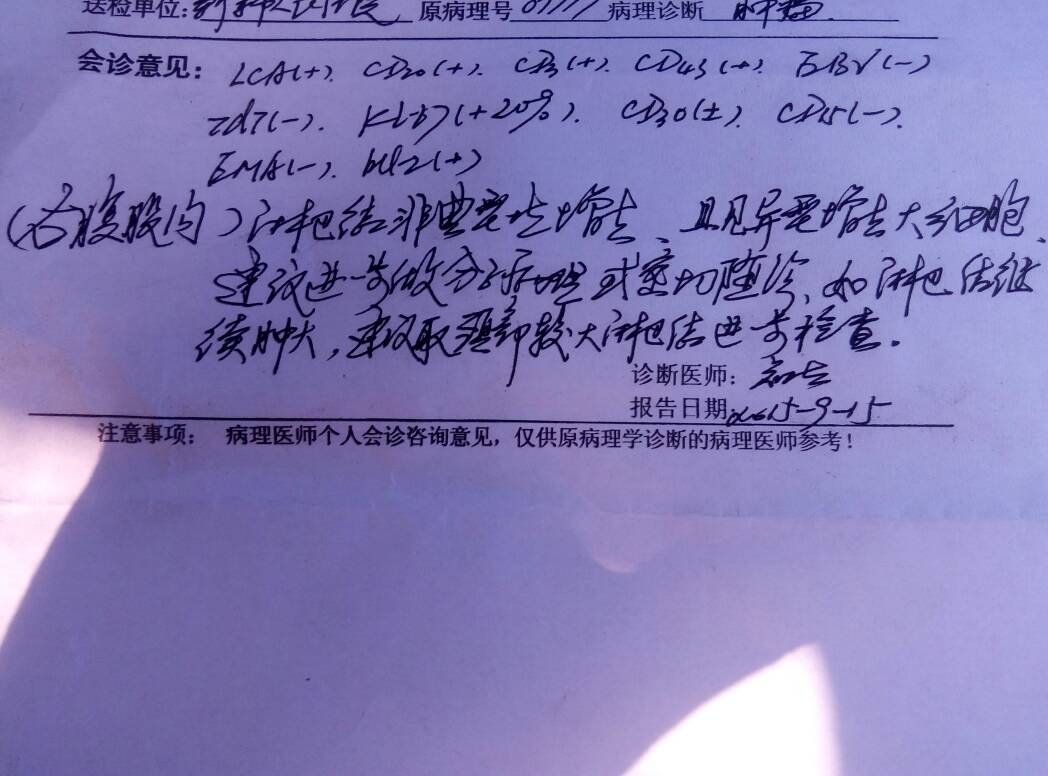 送检单位: 原病理号 病理诊断 肿瘤
会诊意见: LCA(+). CD20(+). CD3(+). CD43(+). EBV(-)
Td7(-). Ki67(+20%). CD30(±). CD15(-).
EMA(-). bcl2(+)
(右腹股沟)淋巴结非典型性增生、且见异型增生大细胞、
建议进一步做分子病理或密切随诊、如淋巴结继
续肿大,建议取颈部较大淋巴结进一步检查.
诊断医师:
报告日期 2015-9-15
注意事项: 病理医师个人会诊咨询意见,仅供原病理学诊断的病理医师参考!